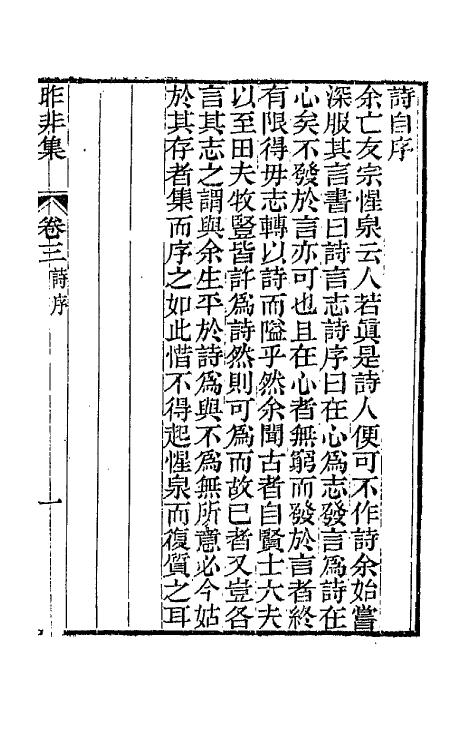 詩自序
余亡友宗惺泉云人若眞是詩人便可不作詩余始嘗
深服其言書曰詩言志詩序曰在心爲志發言爲詩在
心矣不發於言亦可也且在心者無窮而發於言者終
有限得毋志轉以詩而隘乎然余聞古者自賢士大夫
以至田夫牧豎皆許爲詩然則可爲而故已者又豈各
言其志之謂與余生平於詩爲與不爲無所意必今姑
於其存者集而序之如此惜不得起惺泉而復質之耳
昨非集
卷三
詩序
一